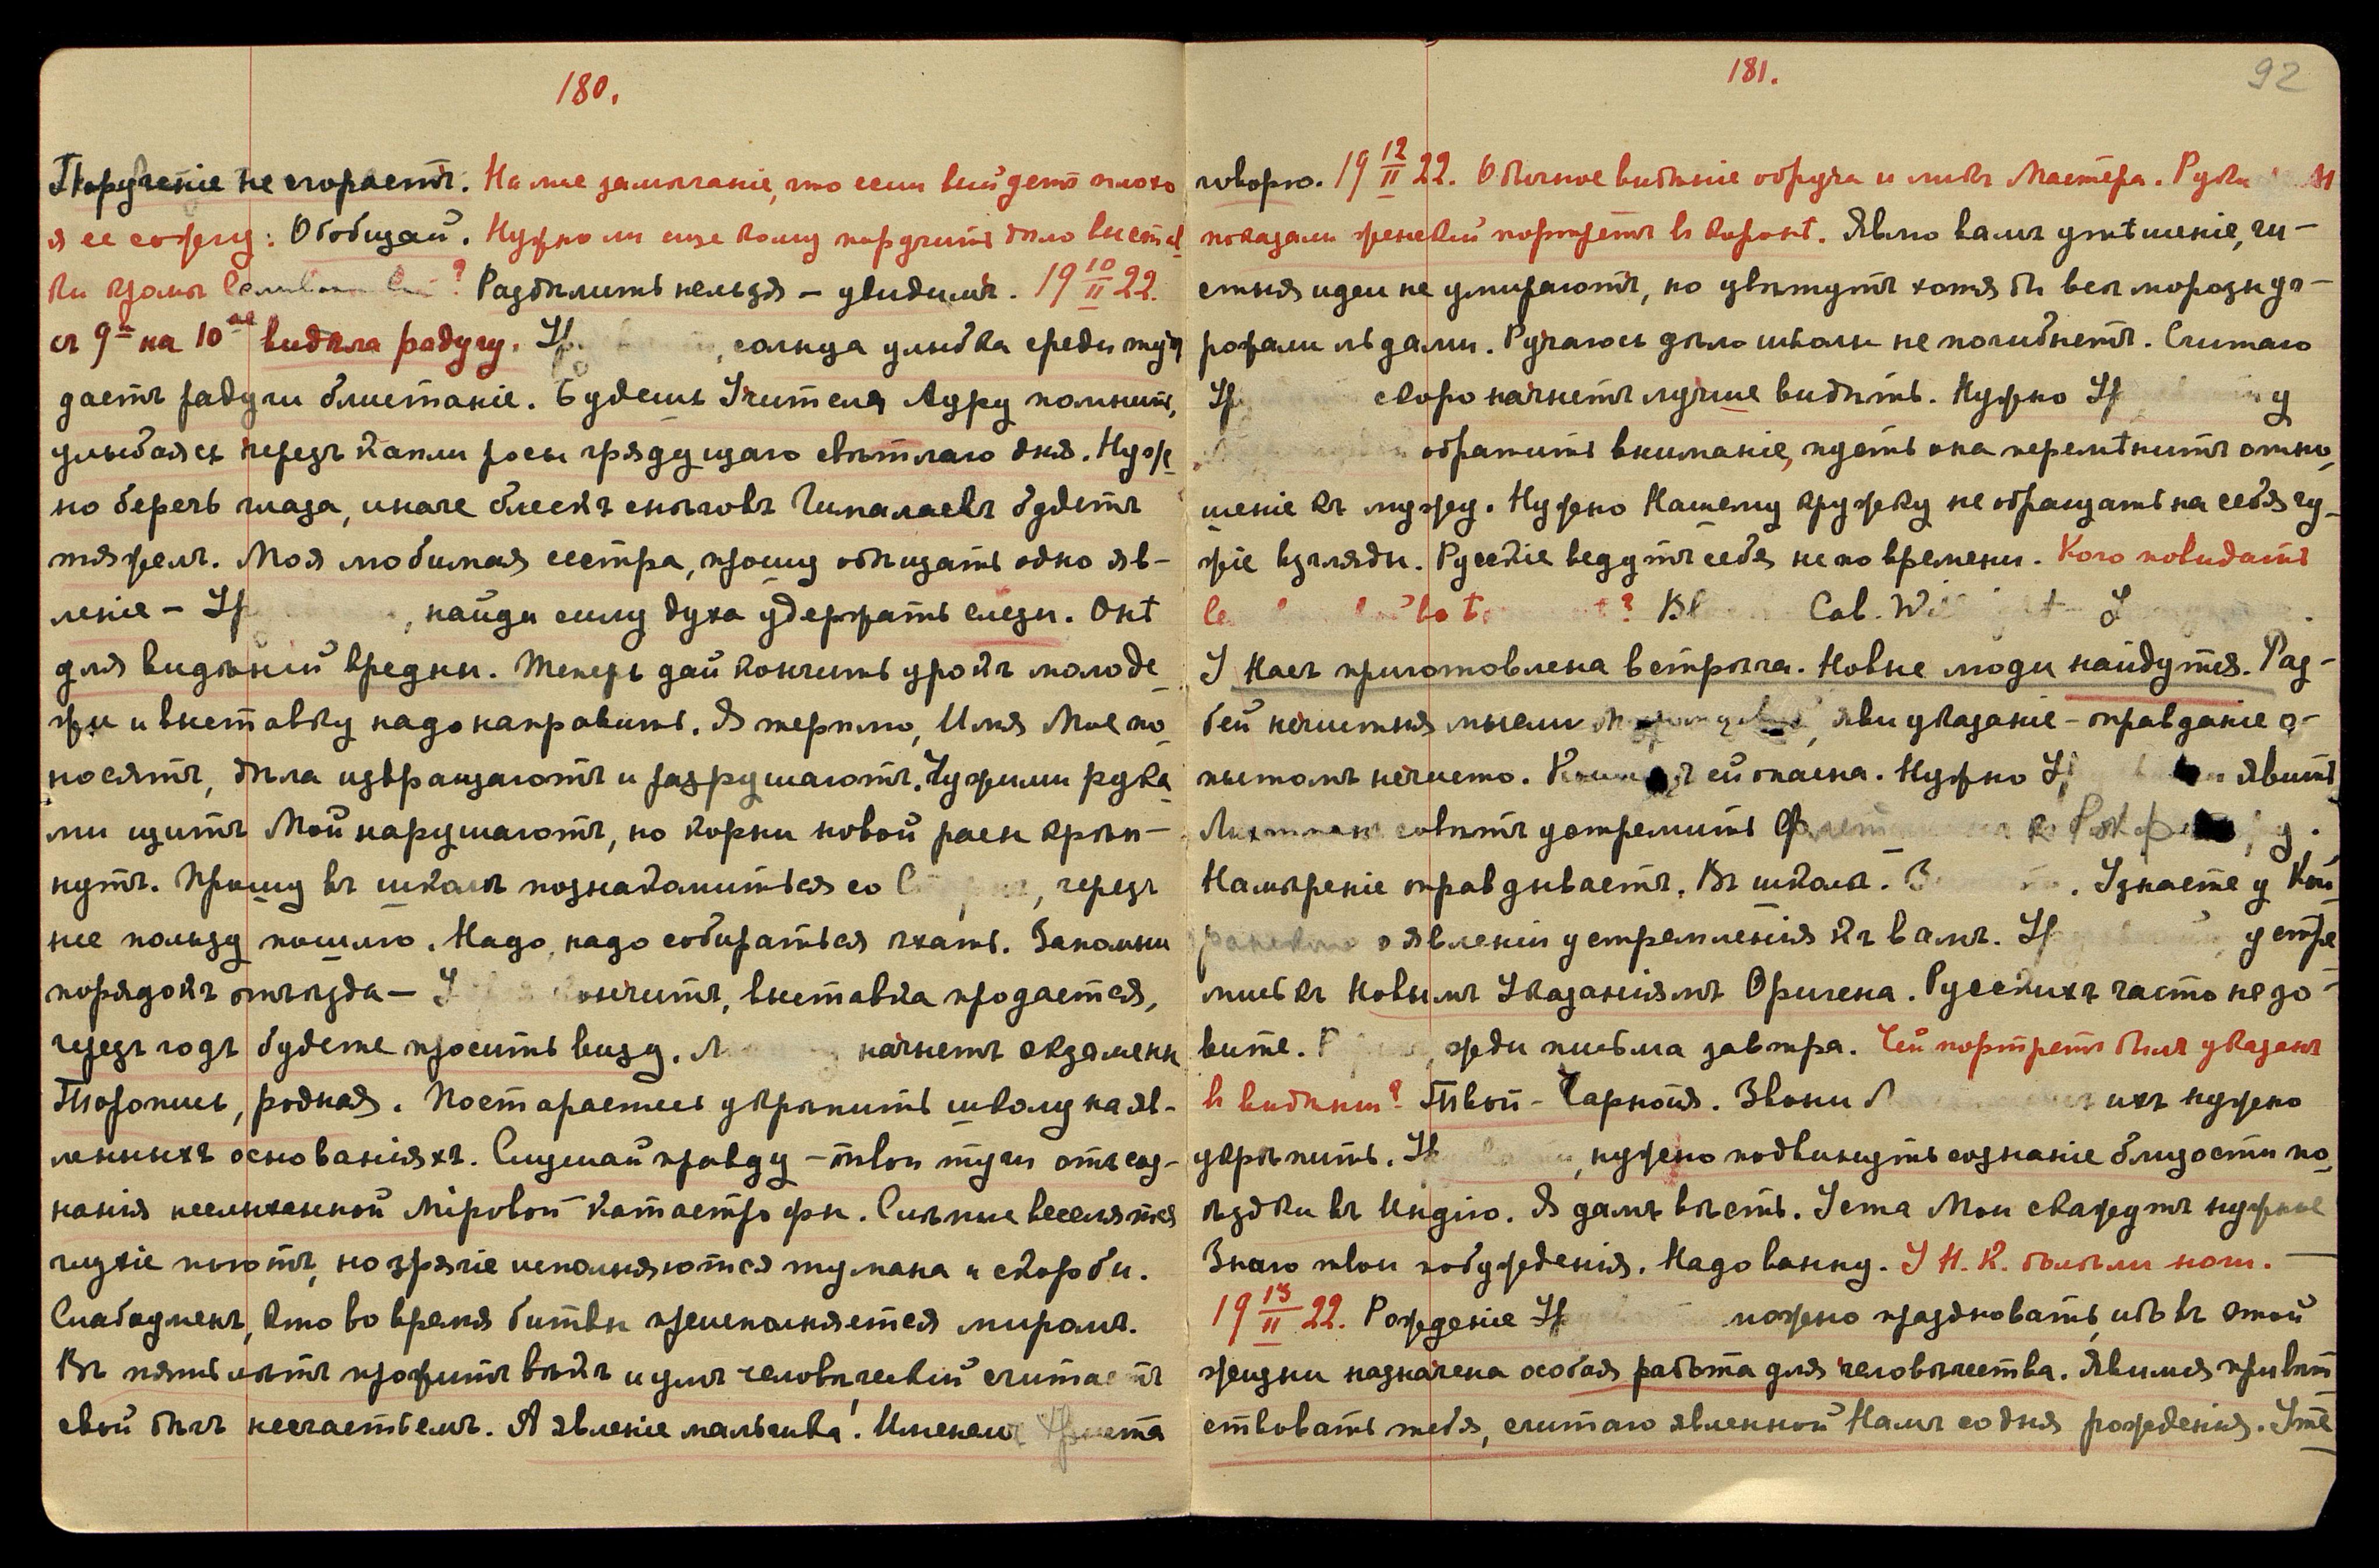 180.
Поручение не сгораетъ. На мое замѣчаніе, что если выйдетъ плохо
я ее сожгу: Обобщай. Нужно ли еще кому поручить дѣло выстав-
ки кромѣ ? Раздѣлить нельзя – увидимъ. 19 10/II 22.
съ 9го на 10ое видѣла радугу. , солнца улыбка среди тучъ
даетъ радуги блистаніе. Будешь Учителя Ауру помнить,
улыбаясь черезъ капли росы грядущаго свѣтлаго дня. Нуж-
но беречь глаза, иначе блескъ снѣговъ Гималаевъ будетъ
тяжелъ. Моя любимая сестра, прошу обѣщать одно яв-
леніе – , найди силу духа удержать слезы. Онѣ
для видѣній вредны. Теперь дай кончить урокъ молоде-
жи и выставку надо направить. Я терплю, Имя Мое по-
носятъ, дѣла извращаютъ и разрушаютъ. Чужими рука-
ми щитъ Мой нарушаютъ, но корни новой расы крѣп-
нутъ. Прошу въ школѣ познакомиться со , черезъ
нее пользу пошлю. Надо, надо собираться ѣхать. Запомни
порядокъ отъѣзда – кончитъ, выставка продается,
черезъ годъ будете просить визу. начнетъ экзамены
Торопись, родная. Постараетесь укрѣпить школу на яв-
ленныхъ основаніяхъ. Слушай правду – твои тучи отъ соз-
нанія неслыханной Міровой катастрофы. Слѣпые веселятся
глухіе поютъ, но зрячіе исполняются тумана и скорби.
Слабоуменъ, кто во время битвы преисполняется миромъ.
Въ пять лѣтъ прожитъ вѣкъ и умъ человѣческій считаетъ
свой бѣгъ несчастьемъ. А явленіе мальчика! Именемъ Христа
181.
92
говорю. 19 12/II 22. Обычное видѣніе обруча и ликъ Мастера.
показали женскій портретъ въ коронѣ. Явлю вамъ утѣшеніе, чи-
стыя идеи не умираютъ, но цвѣтутъ хотя бы всѣ морозы уг-
рожали льдами. Ручаюсь дѣло школы не погибнетъ. Считаю
скоро начнетъ лучше видѣть. Нужно
обратить вниманіе, пусть она перемѣнитъ отно-
шеніе къ мужу. Нужно Нашему кружку не обращать на себя чу-
жіе взгляды. Русскіе ведутъ себя не по времени. Кого повидать
? Cal.
У Насъ приготовлена встрѣча. Новые люди найдутся. Раз-
бей нечистыя мысли , яви указаніе – оправданіе о-
пытомъ нечисто. ей опасна. Нужно явить
совѣтъ устремить къ .
Намѣреніе оправдываетъ. Въ школѣ. . Узнаете у Кой
ранскаго о явленіи устремленія къ вамъ. устре
мись къ Новымъ Указаніямъ Оригена. Русскихъ часто не зо-
вите. , жди письма завтра. Чей портретъ былъ указанъ
въ видѣніи? Твой – Чарнойя. Звони ихъ нужно
укрѣпить. , нужно подвинуть сознаніе близости по-
ѣздки въ Индію. Я дамъ вѣсть. Уста Мои скажутъ нужное
Знаю твои побужденія. Надо ванну. У Н. К. болѣли ноги. –
19 13/II 22. Рожденіе можно праздновать, ибо въ этой
жизни назначена особая работа для человѣчества. Явимся привѣт
ствовать тебя, считаю явленной Намъ со дня рожденія. Утѣ